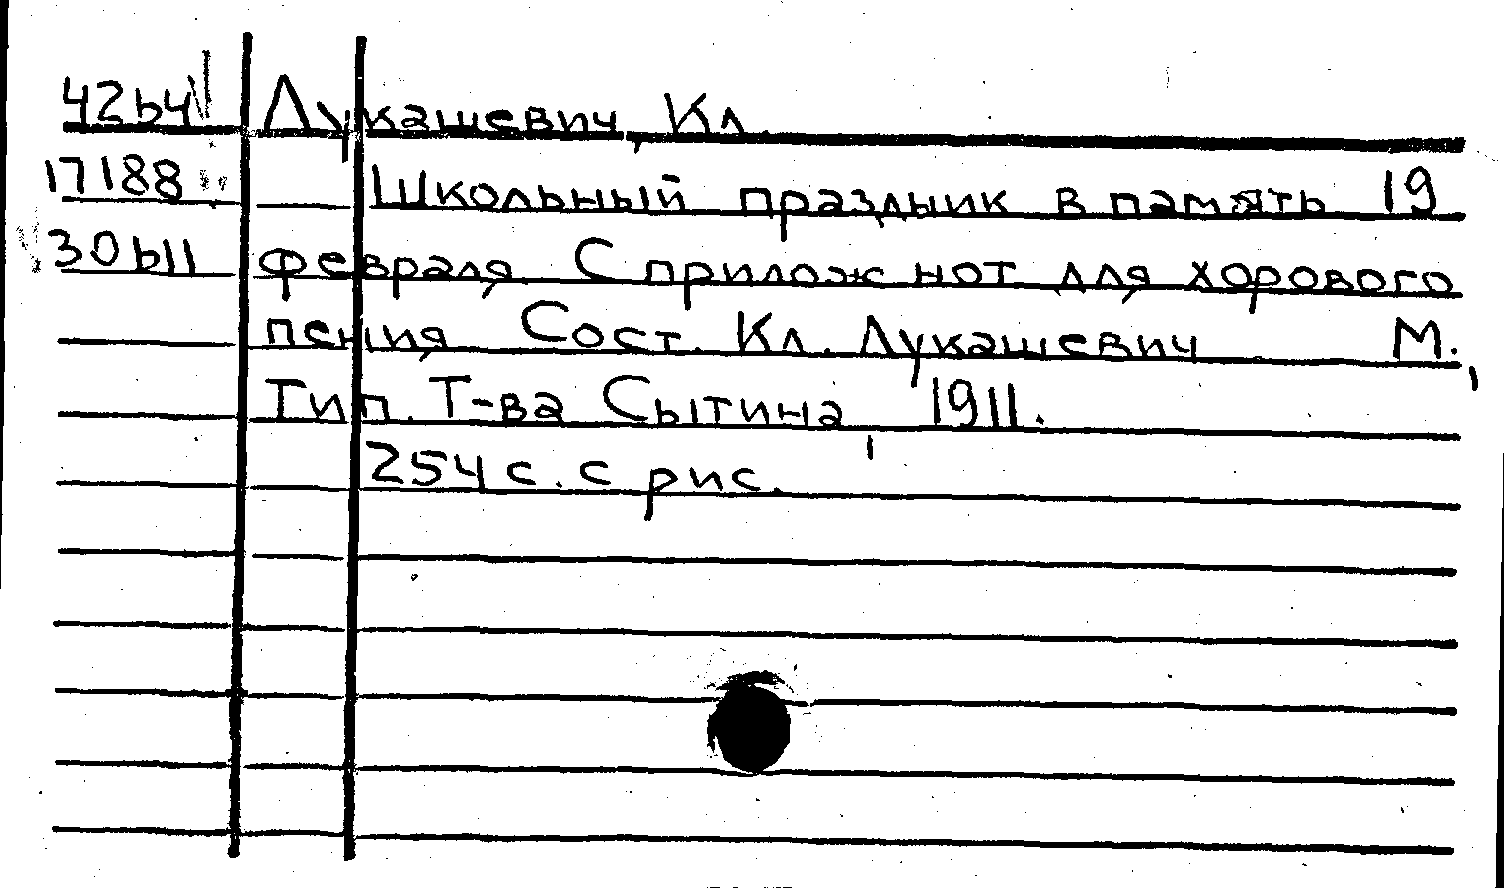 42ь4 Лукашевич, Кл
17188 Школьный праздник в память 19
30ь11 февраля С прилож нот для хорового
пения Сост. Кл. Лукашевич М.,
Тип. Т-ва Сытина, 1911.
254 с. с рис.